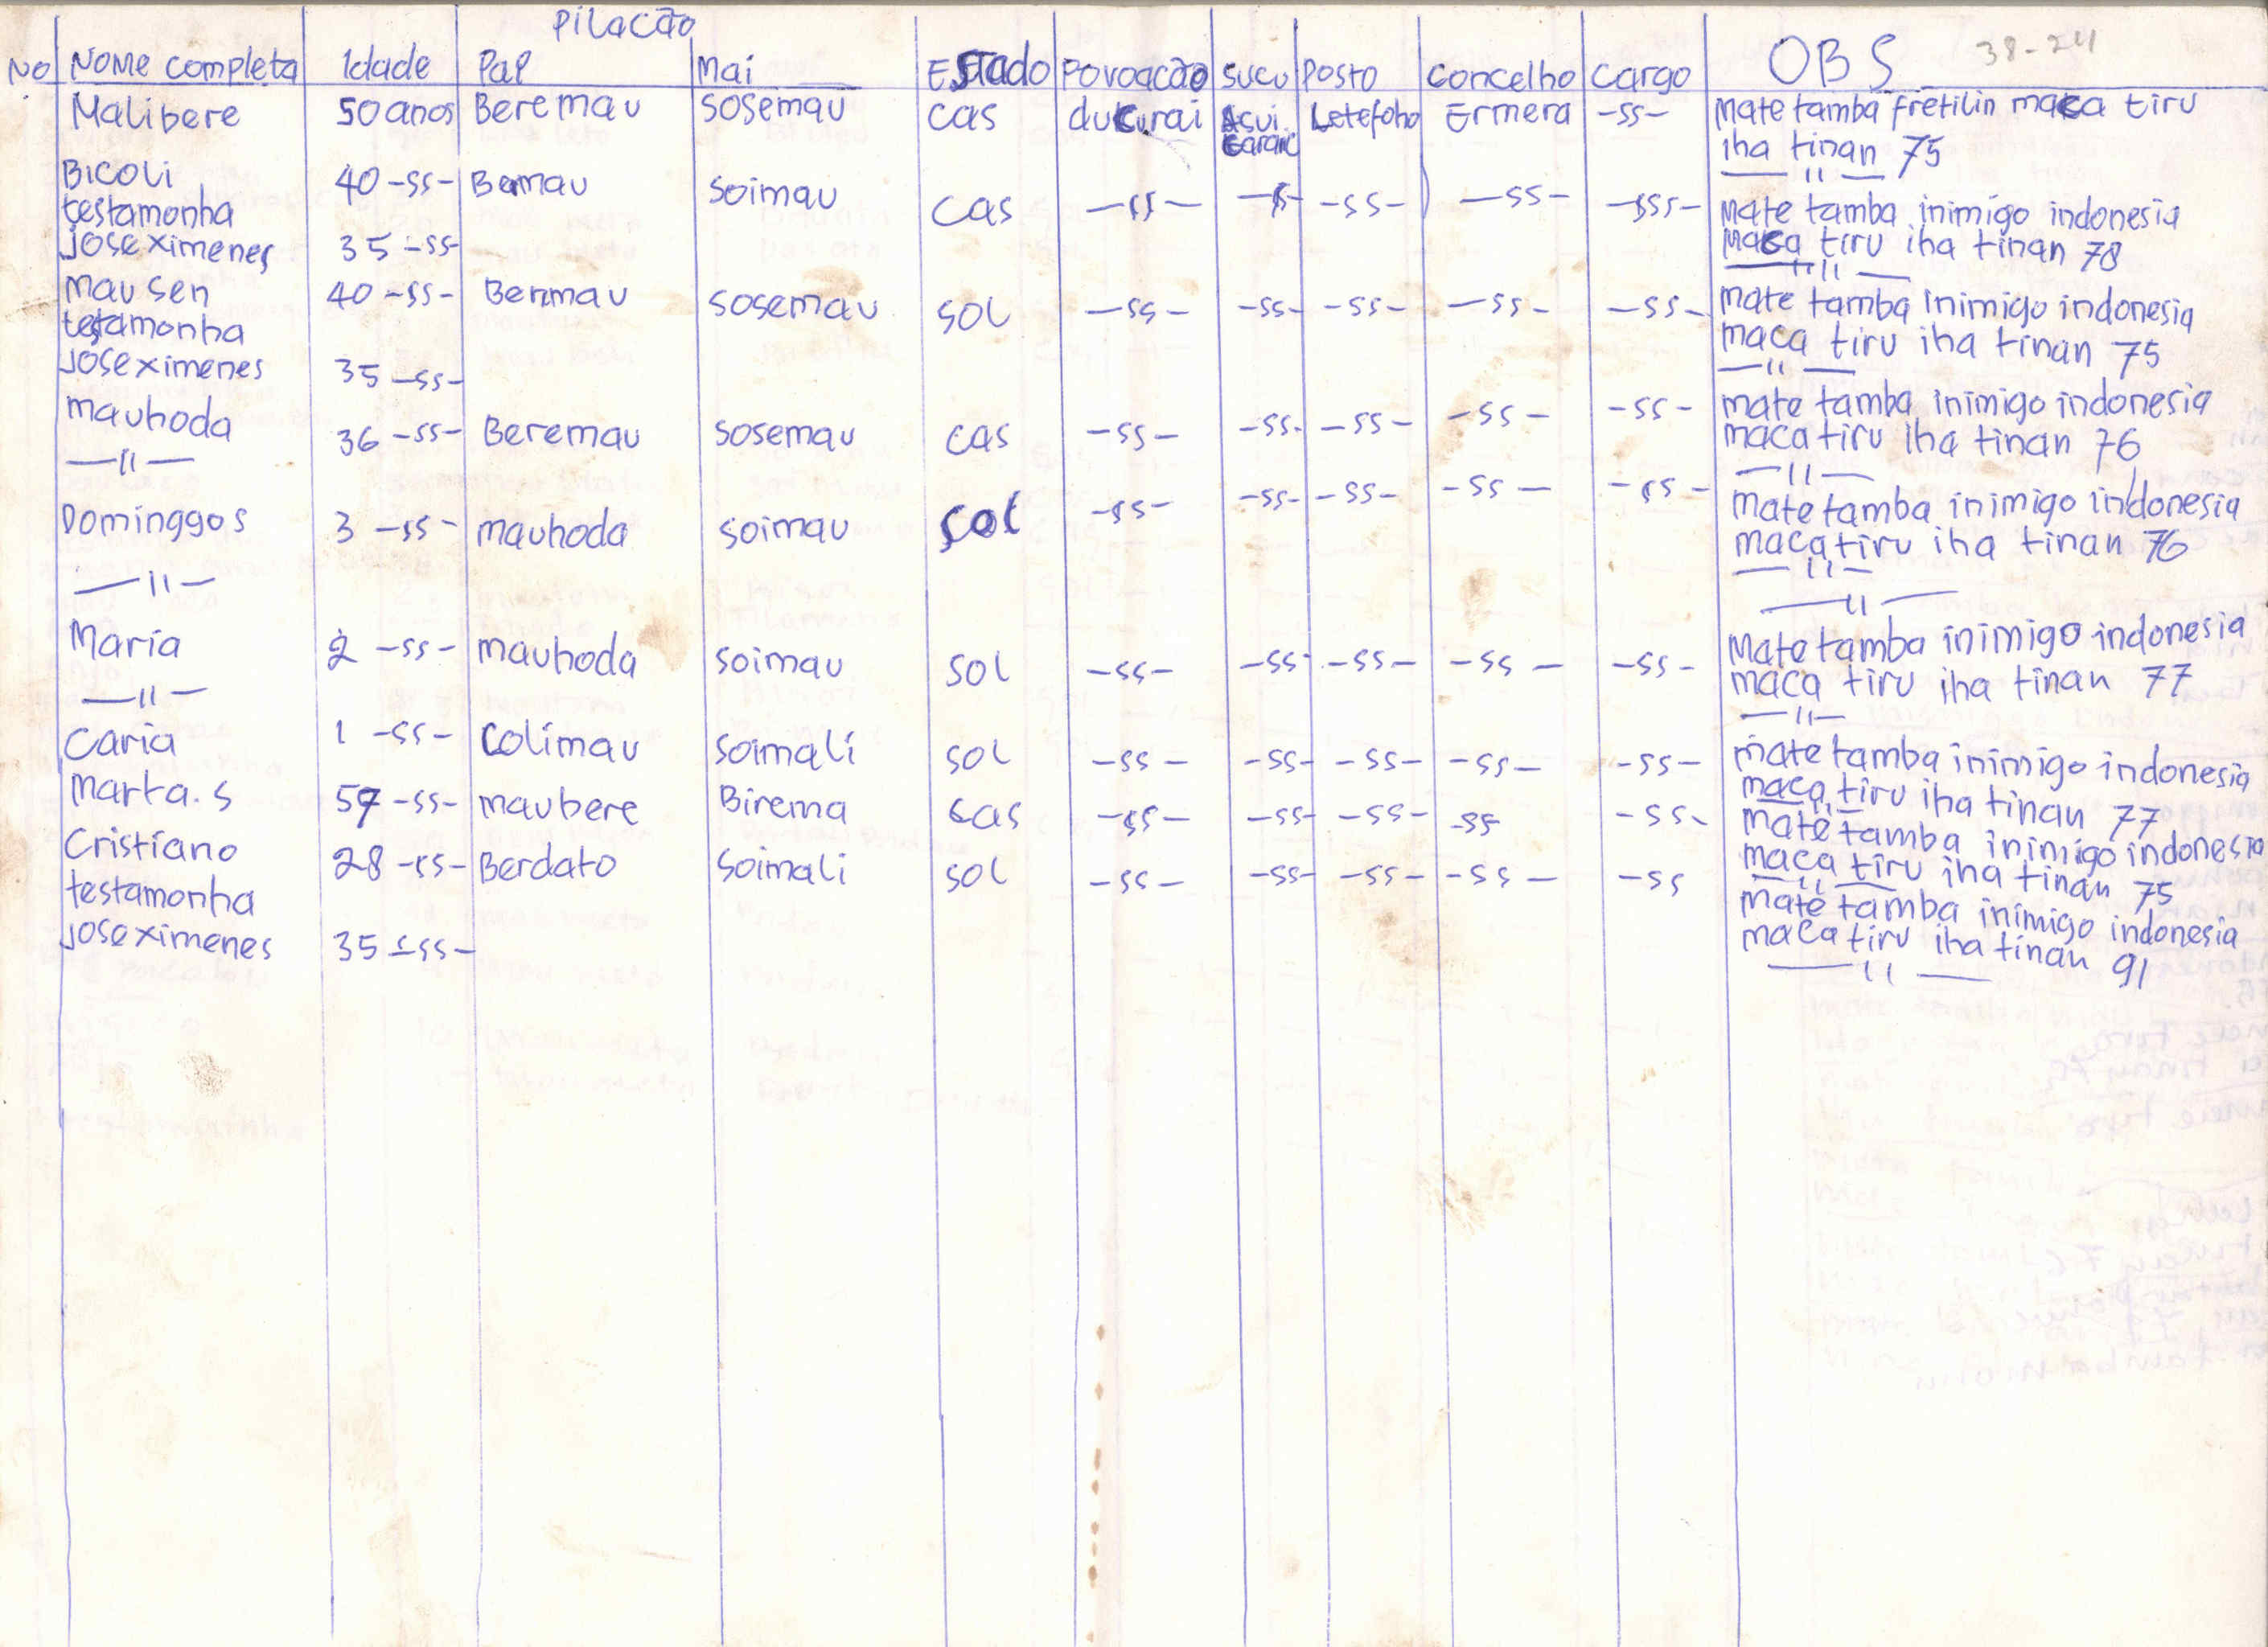 Pilacão
No Nome completa Idade Pai Mai Estado Povoacão Sucu Posto Concelho Cargo OBS 38-24
Malibere 50 anos Beremau Sosemau cas ducurai Letefoho Ermera -ss- Mate tamba fretilin maca tiru
iha tinan 75
— 11 —
Bicoli 40 -ss- Bermau Soimau cas -ss- -ss- -ss- -ss- -sss- Mate tamba inimigo indonesia
testamonha
maca tiru iha tinan 78
Jose ximenes 35 -ss-
— 11 —
Mau sen 40 -ss- Berimau Sosemau sol -ss- -ss- -ss- -ss- -ss- Mate tamba inimigo indonesia
testamonha
maca tiru iha tinan 75
Jose ximenes 35 -ss-
— 11 —
Mauhoda 36 -ss- Beremau Sosemau cas -ss- -ss- -ss- -ss- -ss- mate tamba inimigo indonesia
maca tiru iha tinan 76
— 11 — — 11 —
Dominggos 3 -ss- mauhoda Soimau sol -ss- -ss- -ss- -ss- -ss- Mate tamba inimigo indonesia
maca tiru iha tinan 76
— 11 — — 11 —
— 11 —
Maria 2 -ss- mauhoda Soimau sol -ss- -ss- -ss- -ss- -ss- Mate tamba inimigo indonesia
maca tiru iha tinan 77
— 11 — — 11 —
Caria 1 -ss- Colimau Soimali sol -ss- -ss- -ss- -ss- -ss- mate tamba inimigo indonesia
maca tiru iha tinan 77
Marta. S 57 -ss- maubere Birema cas -ss- -ss- -ss- -ss -ss- mate tamba inimigo indonesia
maca tiru iha tinan 75
— 11 —
Cristiano 28 -ss- Berdato Soimali sol -ss- -ss- -ss- -ss- -ss mate tamba inimigo indonesia
testamonha
maca tiru iha tinan 91
Jose ximenes 35 -ss-
— 11 —